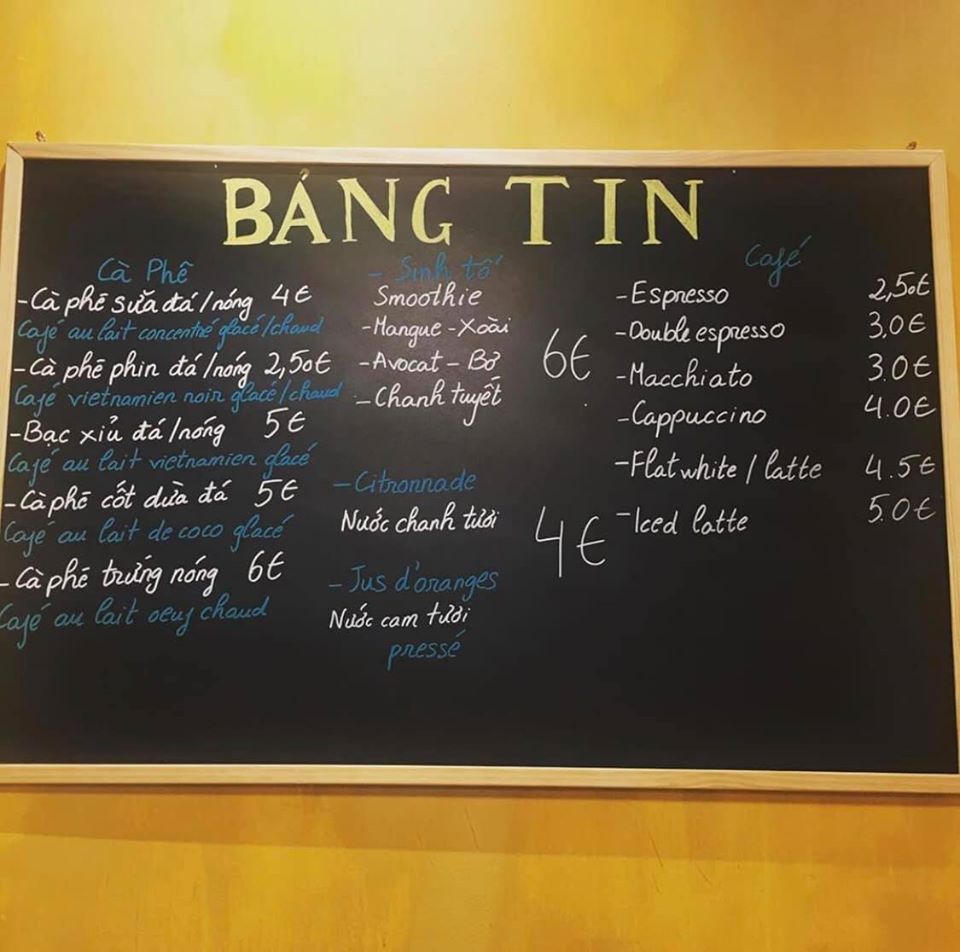 BẢNG TIN
Cà Phê
-Cà phê sữa đá/nóng 4€
Café au lait concentré glacé/chaud
-Cà phê phin đá/nóng 2,50€
Café vietnamien noir glacé/chaud
-Bạc xỉu đá/nóng 5€
Café au lait vietnamien glacé
-Cà phê cốt dừa đá 5€
Café au lait de coco glacé
-Cà phê trứng nóng 6€
Café au lait oeuf chaud
- Sinh tố
Smoothie
-Mangue-Xoài
-Avocat-Bơ
-Chanh tuyết
6€
-Citronnade
Nước chanh tươi
4€
-Jus d'oranges
Nước cam tươi
pressé
Café
-Espresso 2,50€
-Double espresso 3,0€
-Macchiato 3.0€
-Cappuccino 4.0€
-Flat white / latte 4.5€
-Iced latte 5.0€